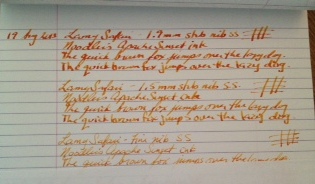 Lamy Safari - 1.9mm stub nib SS
Noodler's Apache Sunset ink
The quick brown fox jumps over the lazy dog.
The quick brown fox jumps over the lazy dog.
Lamy Safari - 1.5mm stub nib SS
Noodler's Apache Sunset ink
The quick brown fox jumps over the lazy dog
The quick brown fox jumps over the lazy dog.
Lamy Safari - Fine nib SS
Noodler's Apache Sunset ink
The quick brown fox jumps over the lazy dog